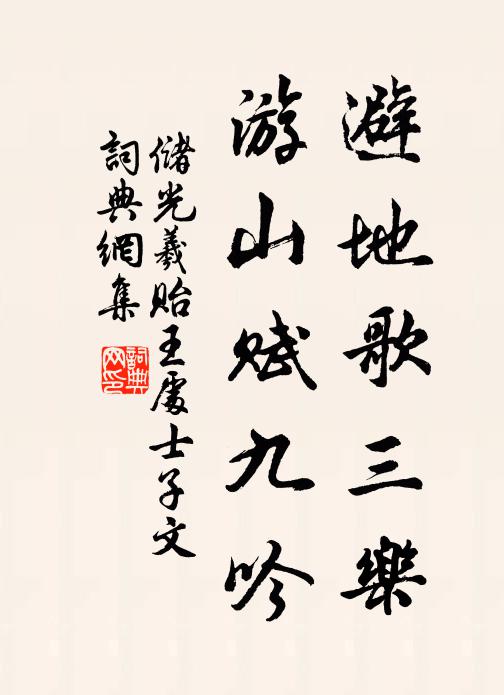 避地歌三樂
游山赋九吟
储光羲貽王處士子文
詞典網集
詞典
网印